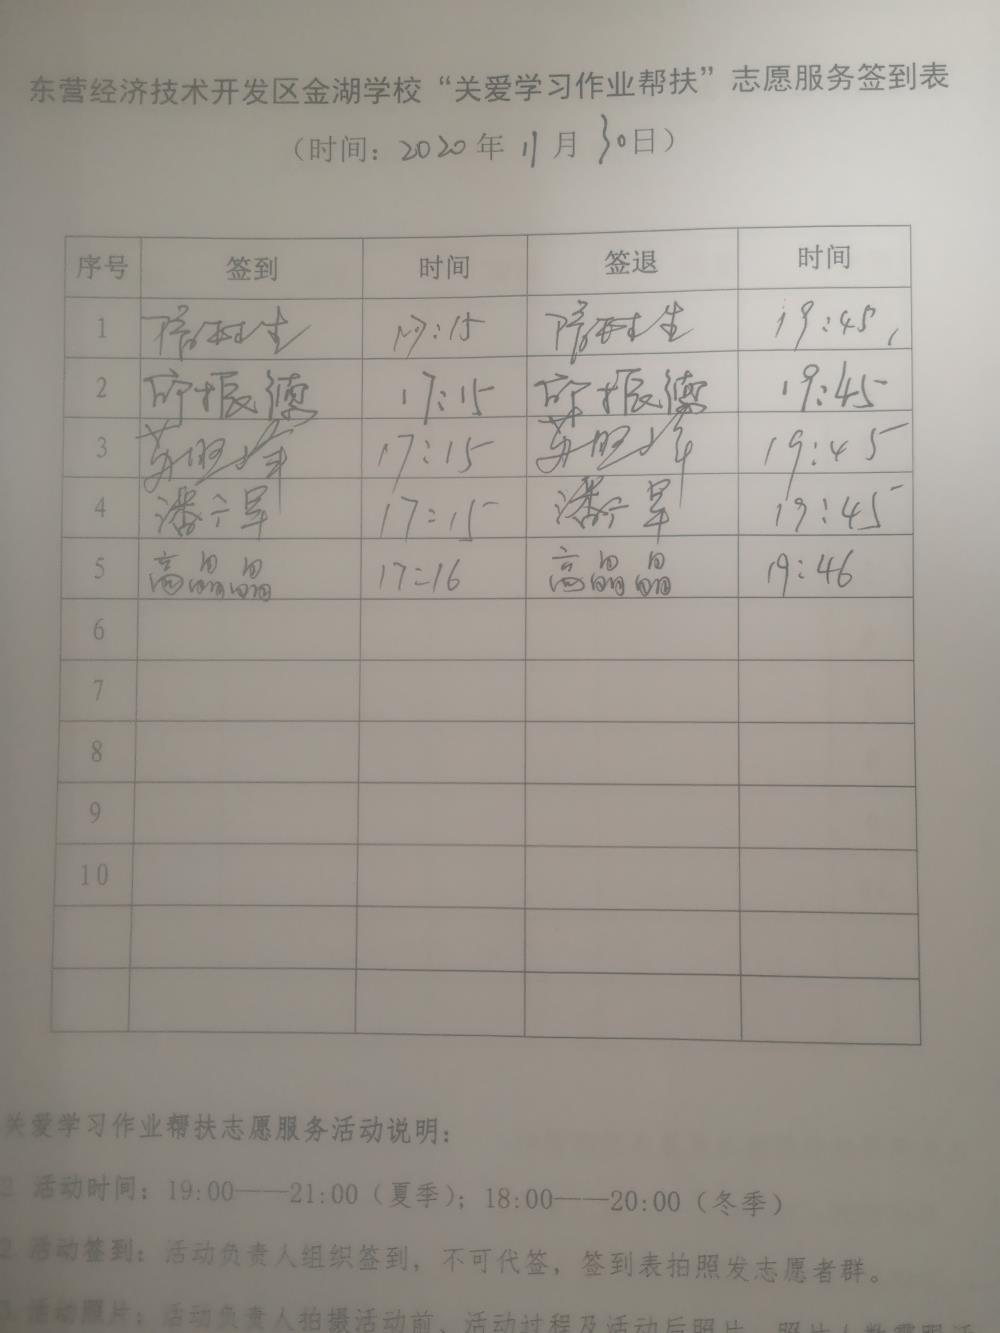 东营经济技术开发区金湖学校“关爱学习作业帮扶”志愿服务签到表
（时间：2020年11月30日）
序号 签到 时间 签退 时间
1 17:15 19:45
2 振德 17:15 振德 19:45
3 17:15 19:45
4 潘 17:15 潘 19:45
5 高晶晶 17:16 高晶晶 19:46
6
7
8
9
10
关爱学习作业帮扶志愿服务活动说明：
活动时间：19:00——21:00（夏季）；18:00——20:00（冬季）
2 活动签到：活动负责人组织签到，不可代签，签到表拍照发志愿者群。
3 活动照片：活动负责人拍摄活动前、活动过程及活动后照片